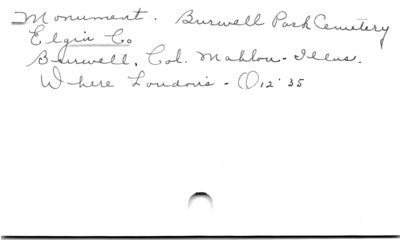 Monument. Burwell Park Cemetery
Elgin Co
Burwell, Col. Mahlon - Illus.
Where London's - O 12 '35